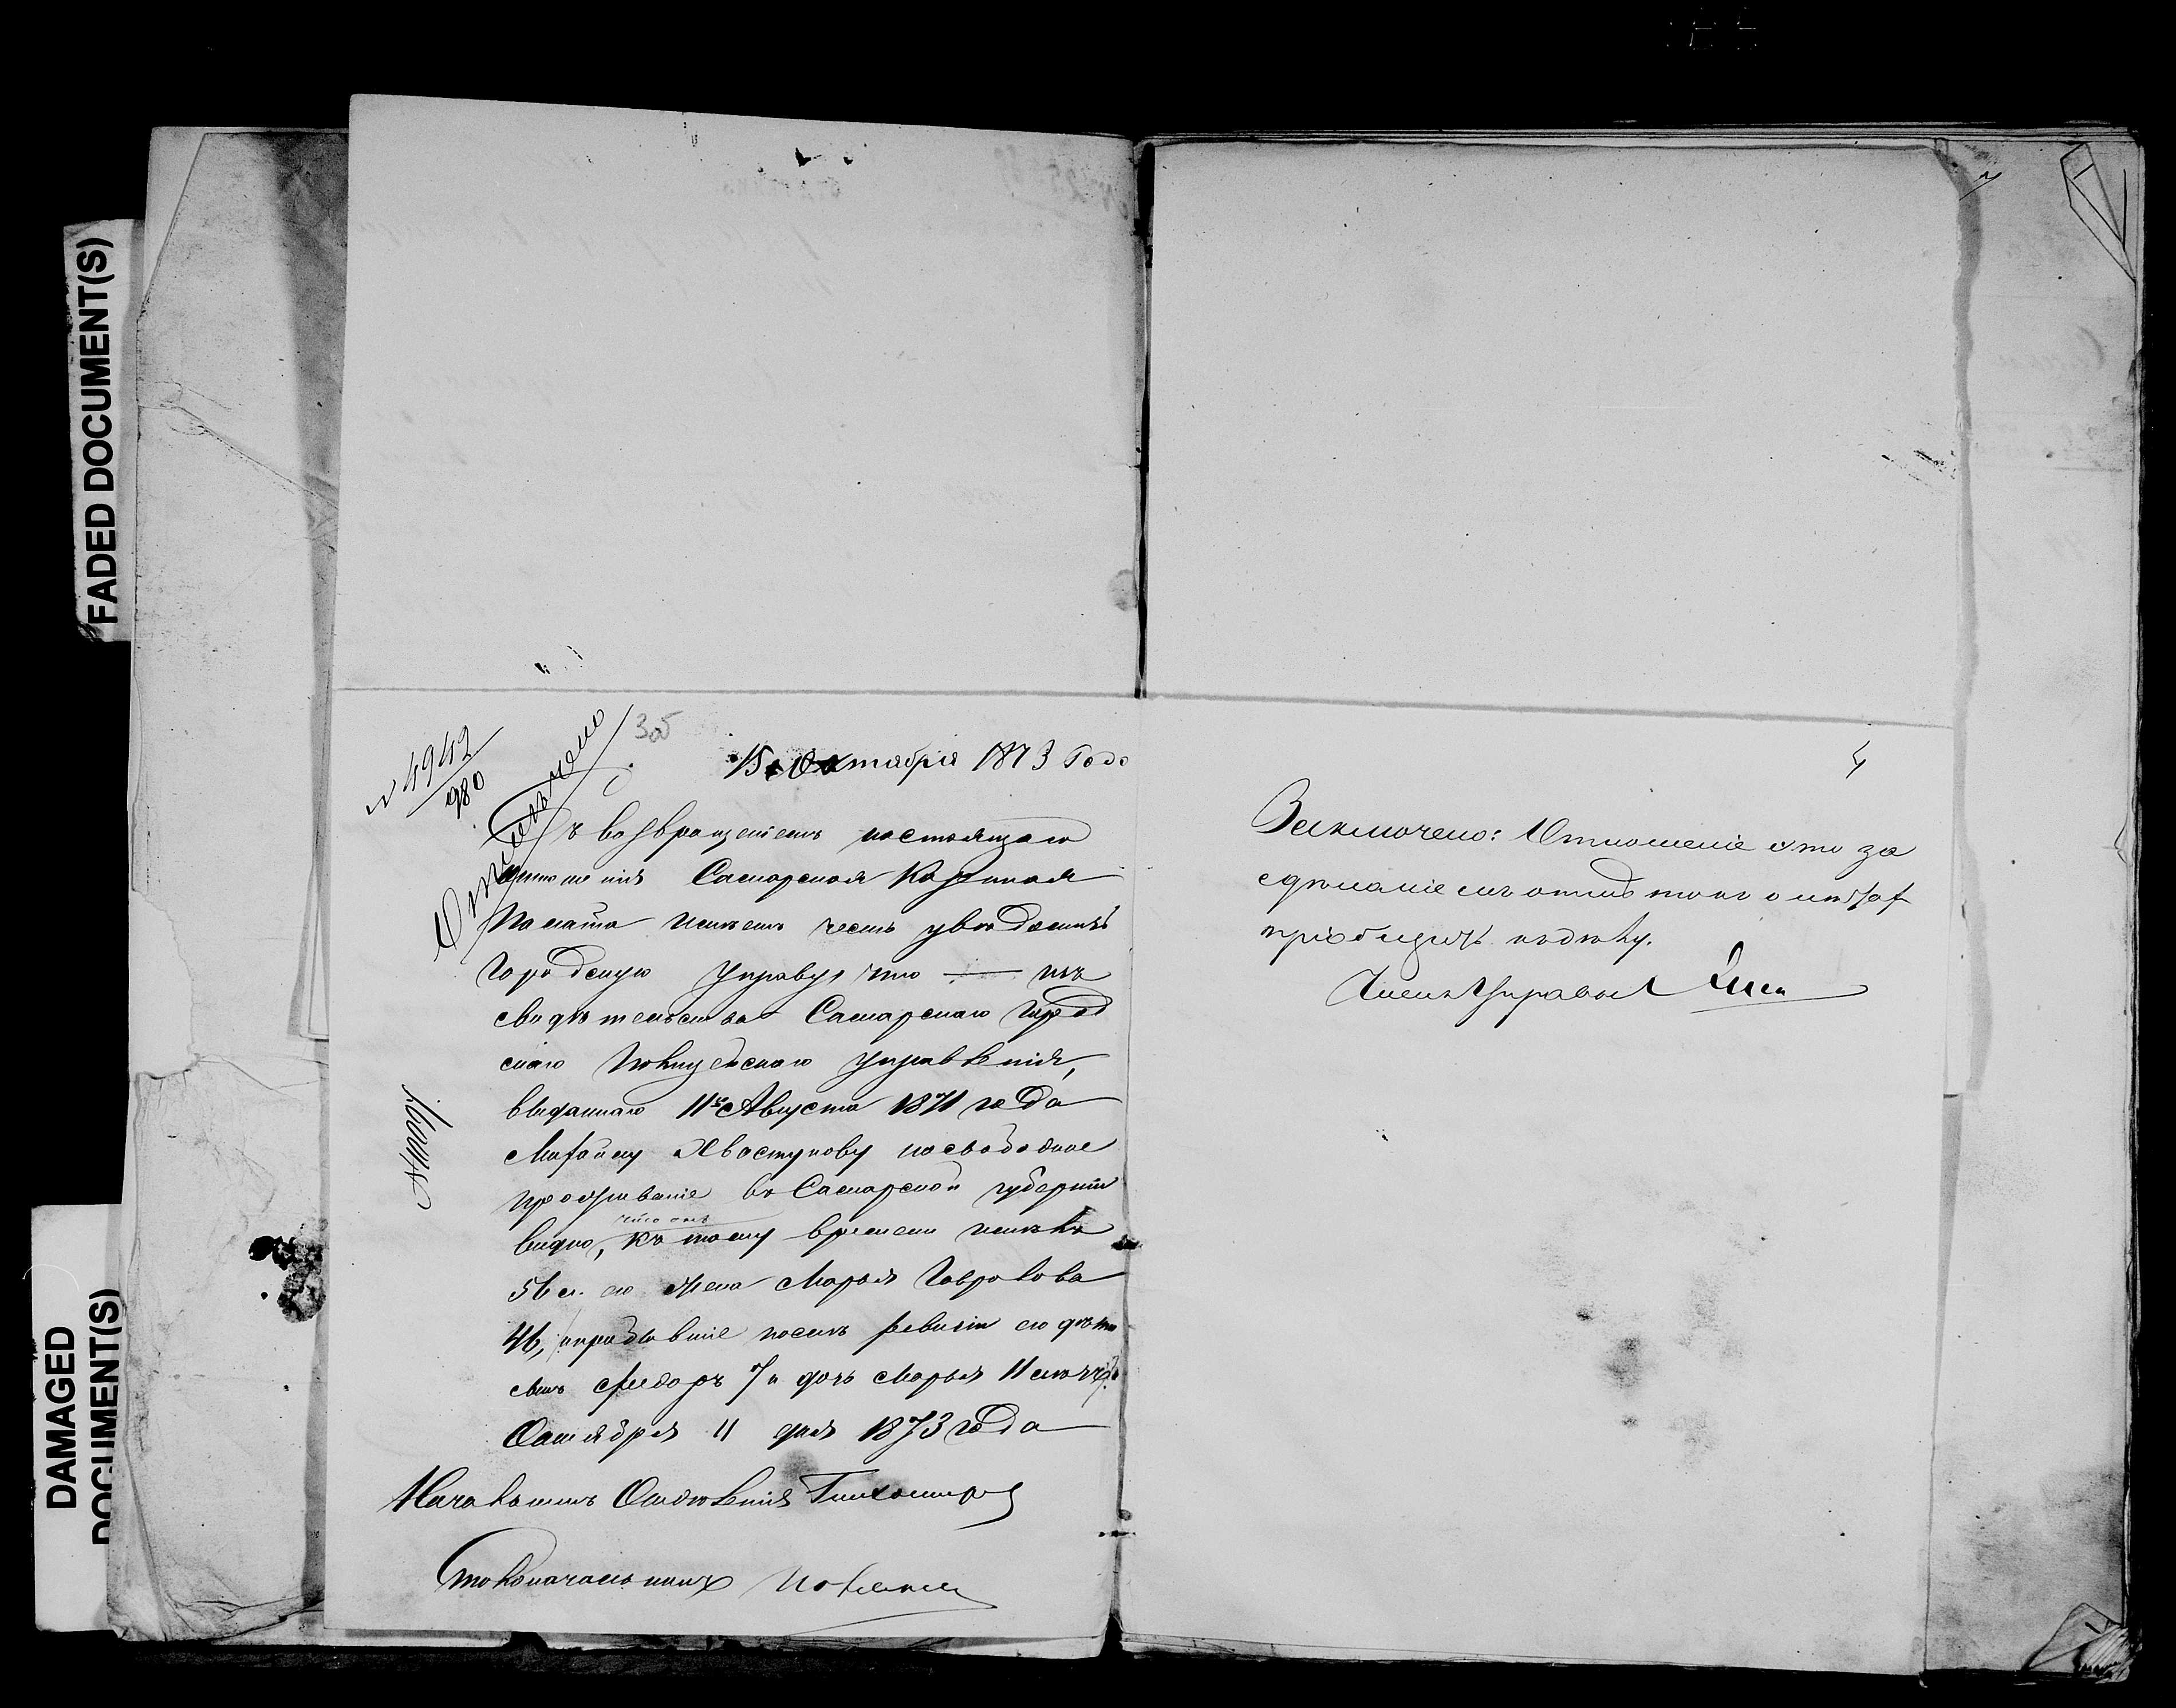 FADED DOCUMENT(S)
DAMAGED
DOCUMENT(S)
N 4942
980
Отмѣчено
305
15 Октября 1873 Года
Съ возвращеніемъ настоящаго
отношенія Самарская Казенная
Палата имѣетъ честь увѣдомить
Городскую Управу, что — изъ
свидѣтельства Самарскаго Город
скаго Полицейскаго Управленія,
выданнаго 11го Августа 1871 года
Хвастунову на свободное
проживаніе въ Самарской губерніи
видно, что онъ къ тому времени имѣлъ
56 л. его жена Марья
46, прибывшіе послѣ ревизіи его дѣти
сынъ Федоръ 7 и дочь Марья 11 лѣтъ
Октября 11 дня 1873 года
Начальникъ Отдѣленія Тихомировъ
Столоначальникъ
4
Заключено: Отношеніе это за
сдѣланіемъ отмѣтки
пріобщить къ дѣлу.
Членъ Управы